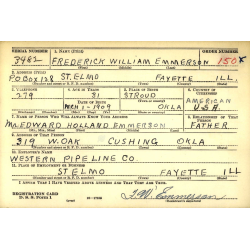 SERIAL NUMBER 1. NAME (Print) ORDER NUMBER
3982 FREDERICK WILLIAM EMMERSON 150
(First) (Middle) (Last)
2. ADDRESS (Print)
P.O BOX 128 ST. ELMO FAYETTE ILL.
3. TELEPHONE 4. AGE IN YEARS 5. PLACE OF BIRTH 6. COUNTRY OF CITIZENSHIP
279 31 STROUD AMERICAN
DATE OF BIRTH
1-1909 OKLA U.S.A.
7. NAME OF PERSON WHO WILL ALWAYS KNOW YOUR ADDRESS 8. RELATIONSHIP OF THAT PERSON
MR. EDWARD HOLLAND EMMERSON FATHER
9. ADDRESS OF THAT PERSON
318 W. OAK CUSHING OKLA
10. EMPLOYER'S NAME
WESTERN PIPELINE CO.
11. PLACE OF EMPLOYMENT OR BUSINESS
ST ELMO FAYETTE ILL
I AFFIRM THAT I HAVE VERIFIED ABOVE ANSWERS AND THAT THEY ARE TRUE.
REGISTRATION CARD
D. S. S. Form 1
F.W. Emmerson
(Registrant's signature)